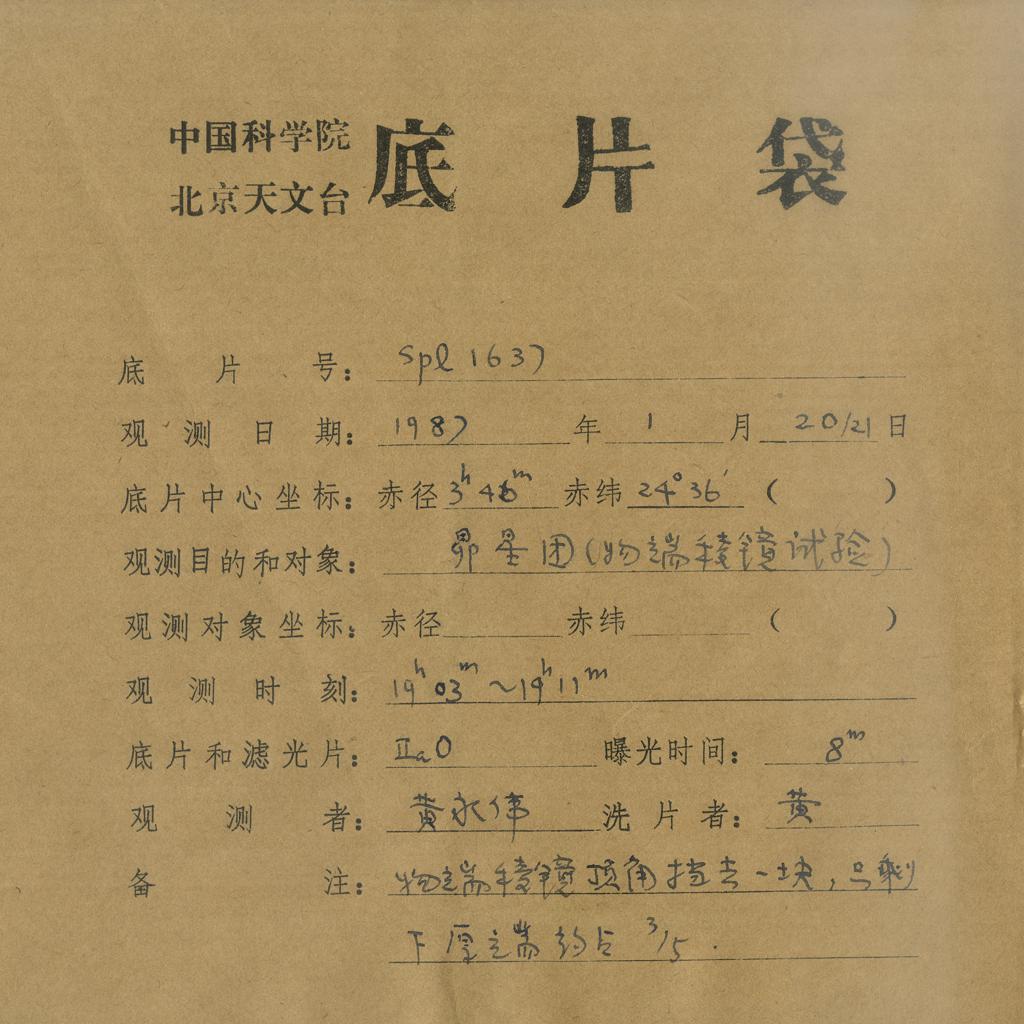 中国科学院
北京天文台
底片袋
底片号: spl 1637
观测日期: 1987年1月20/21日
底片中心坐标: 赤径3h46m 赤纬24°36′ ( )
观测目的和对象: 昴星团(物端稜镜试验)
观测对象坐标: 赤径 赤纬 ( )
观测时刻: 19h03m~19h11m
底片和滤光片: IIaO 曝光时间: 8m
观测者: 黄永伟 洗片者: 黄
备注: 物端稜镜顶角挡去一块,只剩
下厚端约占3/5.